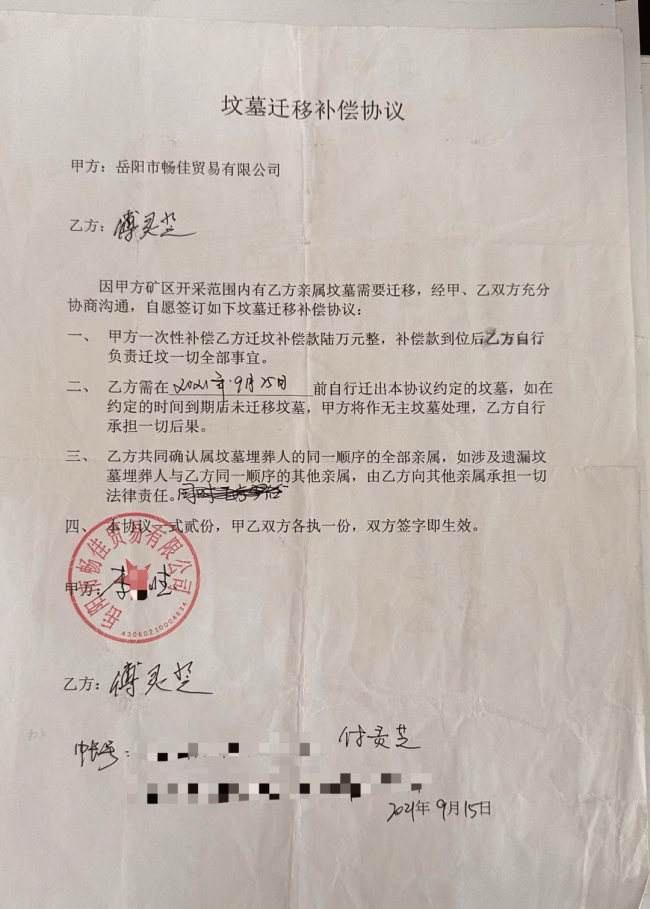 坟墓迁移补偿协议
甲方：岳阳市畅佳贸易有限公司
乙方：傅灵芝
因甲方矿区开采范围内有乙方亲属坟墓需要迁移，经甲、乙双方充分
协商沟通，自愿签订如下坟墓迁移补偿协议：
一、 甲方一次性补偿乙方迁坟补偿款陆万元整，补偿款到位后乙方自行
负责迁坟一切全部事宜。
二、 乙方需在 2021年9月25日 前自行迁出本协议约定的坟墓，如在
约定的时间到期后未迁移坟墓，甲方将作无主坟墓处理，乙方自行
承担一切后果。
三、 乙方共同确认属坟墓埋葬人的同一顺序的全部亲属，如涉及遗漏坟
墓埋葬人与乙方同一顺序的其他亲属，由乙方向其他亲属承担一切
法律责任。
四、 本协议一式贰份，甲乙双方各执一份，双方签字即生效。
岳阳市畅佳贸易有限公司
43060210004634
甲方：李
乙方：傅灵芝
帐号：
付灵芝
2021年9月15日